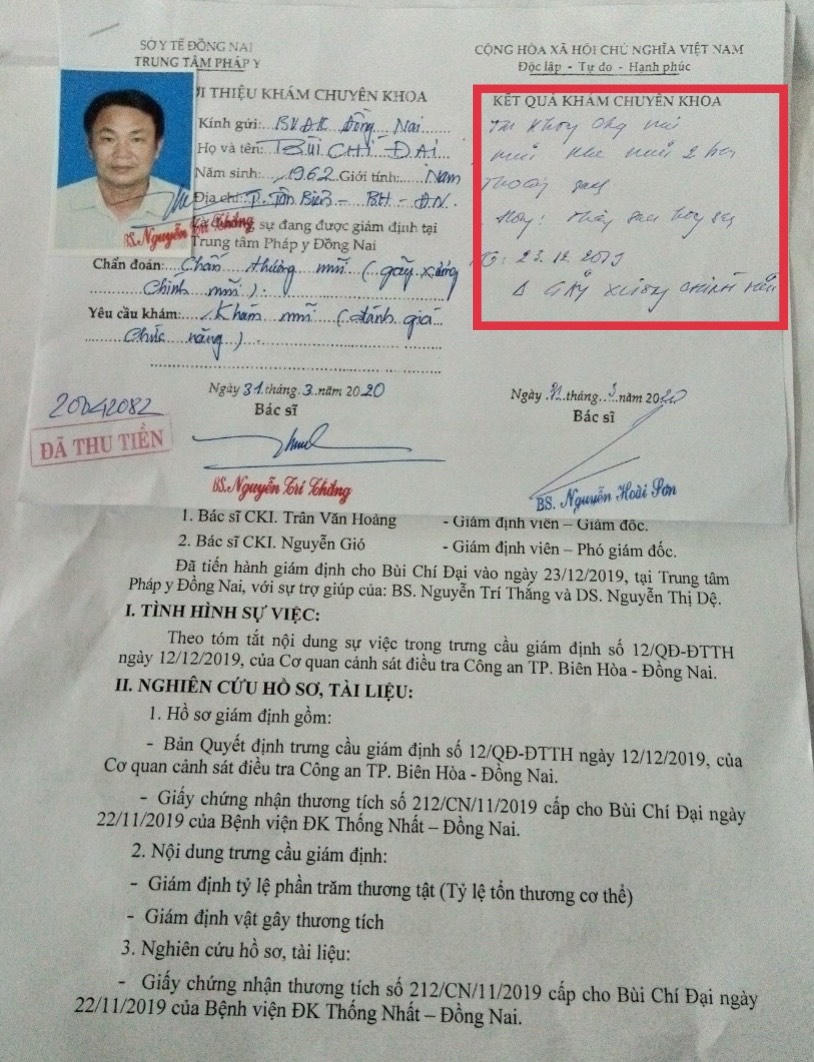 SỞ Y TẾ ĐỒNG NAI
TRUNG TÂM PHÁP Y
CỘNG HÒA XÃ HỘI CHỦ NGHĨA VIỆT NAM
Độc lập - Tự do - Hạnh phúc
I THIỆU KHÁM CHUYÊN KHOA
Kính gửi: BVĐK Đồng Nai
Họ và tên: BÙI CHÍ ĐẠI
Năm sinh: 1962 Giới tính: Nam
Địa chỉ: P. Tân Biên - BH - ĐN.
sự đang được giám định tại
Trung tâm Pháp y Đồng Nai
BS.Nguyễn Trí Thắng
Chẩn đoán: Chấn thương mũi (gãy xương
chính mũi).
Yêu cầu khám: Khám mũi (đánh giá
chức năng).
Ngày 31.tháng.3.năm 2020
Bác sĩ
BS.Nguyễn Trí Thắng
20042082
ĐÃ THU TIỀN
KẾT QUẢ KHÁM CHUYÊN KHOA
mũi 2 bên
23.12.2019
Δ GÃY XƯƠNG CHÍNH MŨI
Ngày 31.tháng.3.năm 2020
Bác sĩ
BS. Nguyễn Hoài Sơn
1. Bác sĩ CKI. Trần Văn Hoàng - Giám định viên – Giám đốc.
2. Bác sĩ CKI. Nguyễn Gió - Giám định viên – Phó giám đốc.
Đã tiến hành giám định cho Bùi Chí Đại vào ngày 23/12/2019, tại Trung tâm
Pháp y Đồng Nai, với sự trợ giúp của: BS. Nguyễn Trí Thắng và DS. Nguyễn Thị Dệ.
I. TÌNH HÌNH SỰ VIỆC:
Theo tóm tắt nội dung sự việc trong trưng cầu giám định số 12/QĐ-ĐTTH
ngày 12/12/2019, của Cơ quan cảnh sát điều tra Công an TP. Biên Hòa - Đồng Nai.
II. NGHIÊN CỨU HỒ SƠ, TÀI LIỆU:
1. Hồ sơ giám định gồm:
- Bản Quyết định trưng cầu giám định số 12/QĐ-ĐTTH ngày 12/12/2019, của
Cơ quan cảnh sát điều tra Công an TP. Biên Hòa - Đồng Nai.
- Giấy chứng nhận thương tích số 212/CN/11/2019 cấp cho Bùi Chí Đại ngày
22/11/2019 của Bệnh viện ĐK Thống Nhất – Đồng Nai.
2. Nội dung trưng cầu giám định:
- Giám định tỷ lệ phần trăm thương tật (Tỷ lệ tổn thương cơ thể)
- Giám định vật gây thương tích
3. Nghiên cứu hồ sơ, tài liệu:
- Giấy chứng nhận thương tích số 212/CN/11/2019 cấp cho Bùi Chí Đại ngày
22/11/2019 của Bệnh viện ĐK Thống Nhất – Đồng Nai.